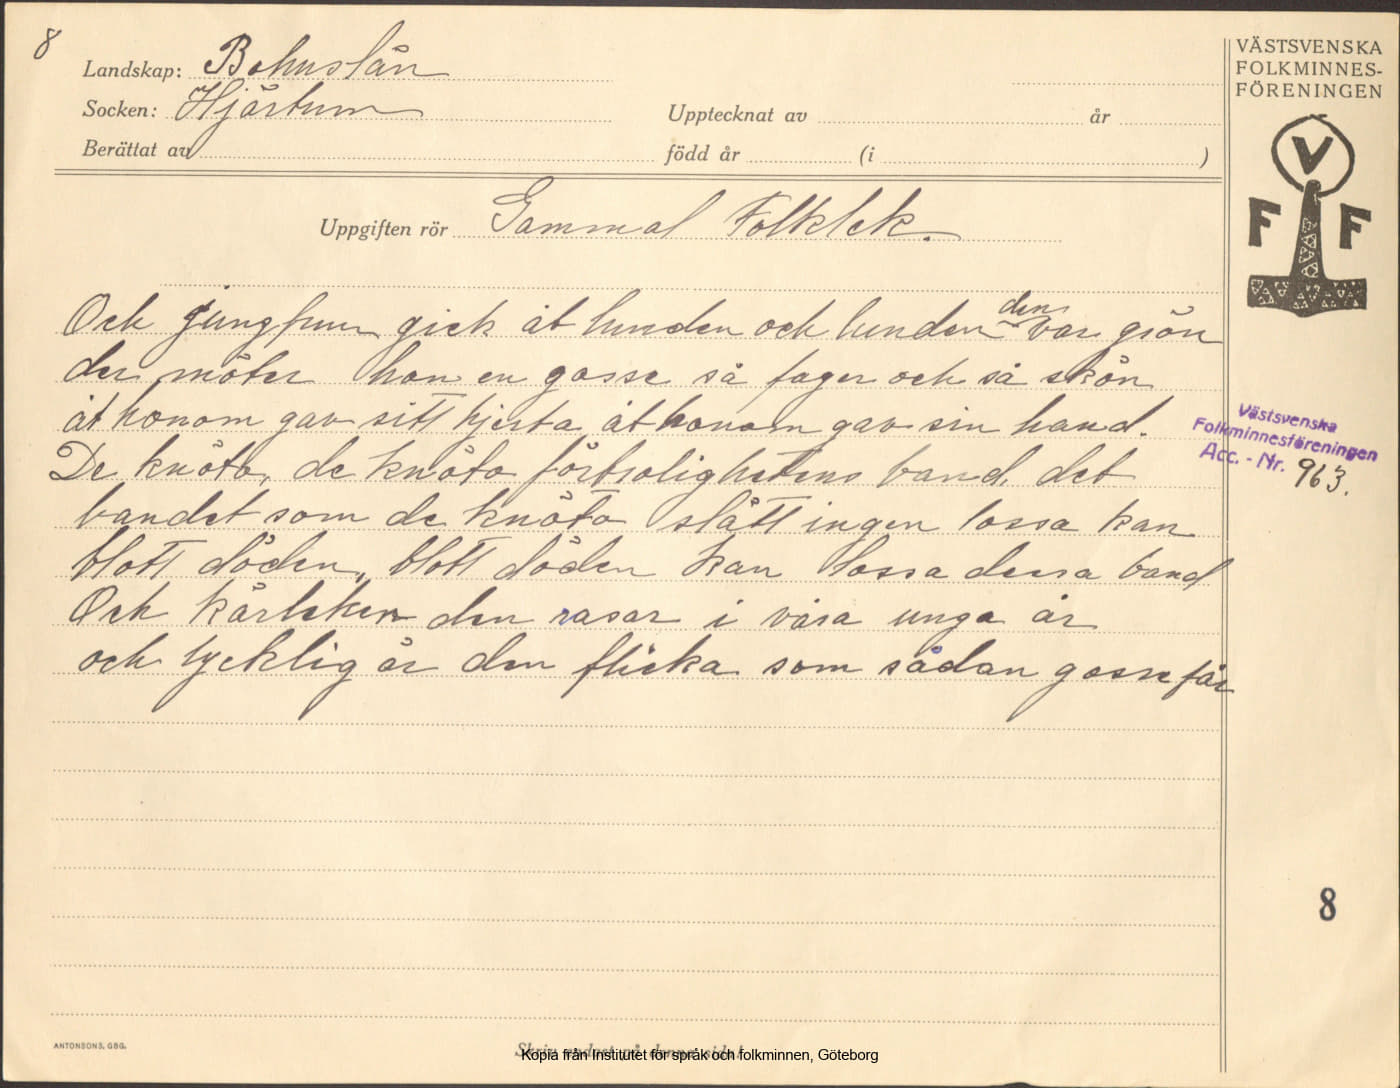 8
Landskap: Bohuslän
Socken: Hjärtum
Upptecknat av år
Berättat av född år (i )
Uppgiften rör Gammal Folklek.
Och jungfrun gick åt lunden och lunden den var grön
der möter hon en gosse så fager och så skön
åt honom gav sitt hjerta åt honom gav sin hand.
De knöto, de knöto förtrolighetens band, det
bandet som de knöto slätt ingen lossa kan
blott döden, blott döden kan lossa dessa band
Och kärleken den rasar i våra unga år
och lycklig är den flicka som sådan gosse får
VÄSTSVENSKA
FOLKMINNES-
FÖRENINGEN
V
F F
Västsvenska
Folkminnesföreningen
Acc. - Nr. 963.
8
ANTONSONS, GBG.
Skriv endast på denna sida!
Kopia från Institutet för språk och folkminnen, Göteborg